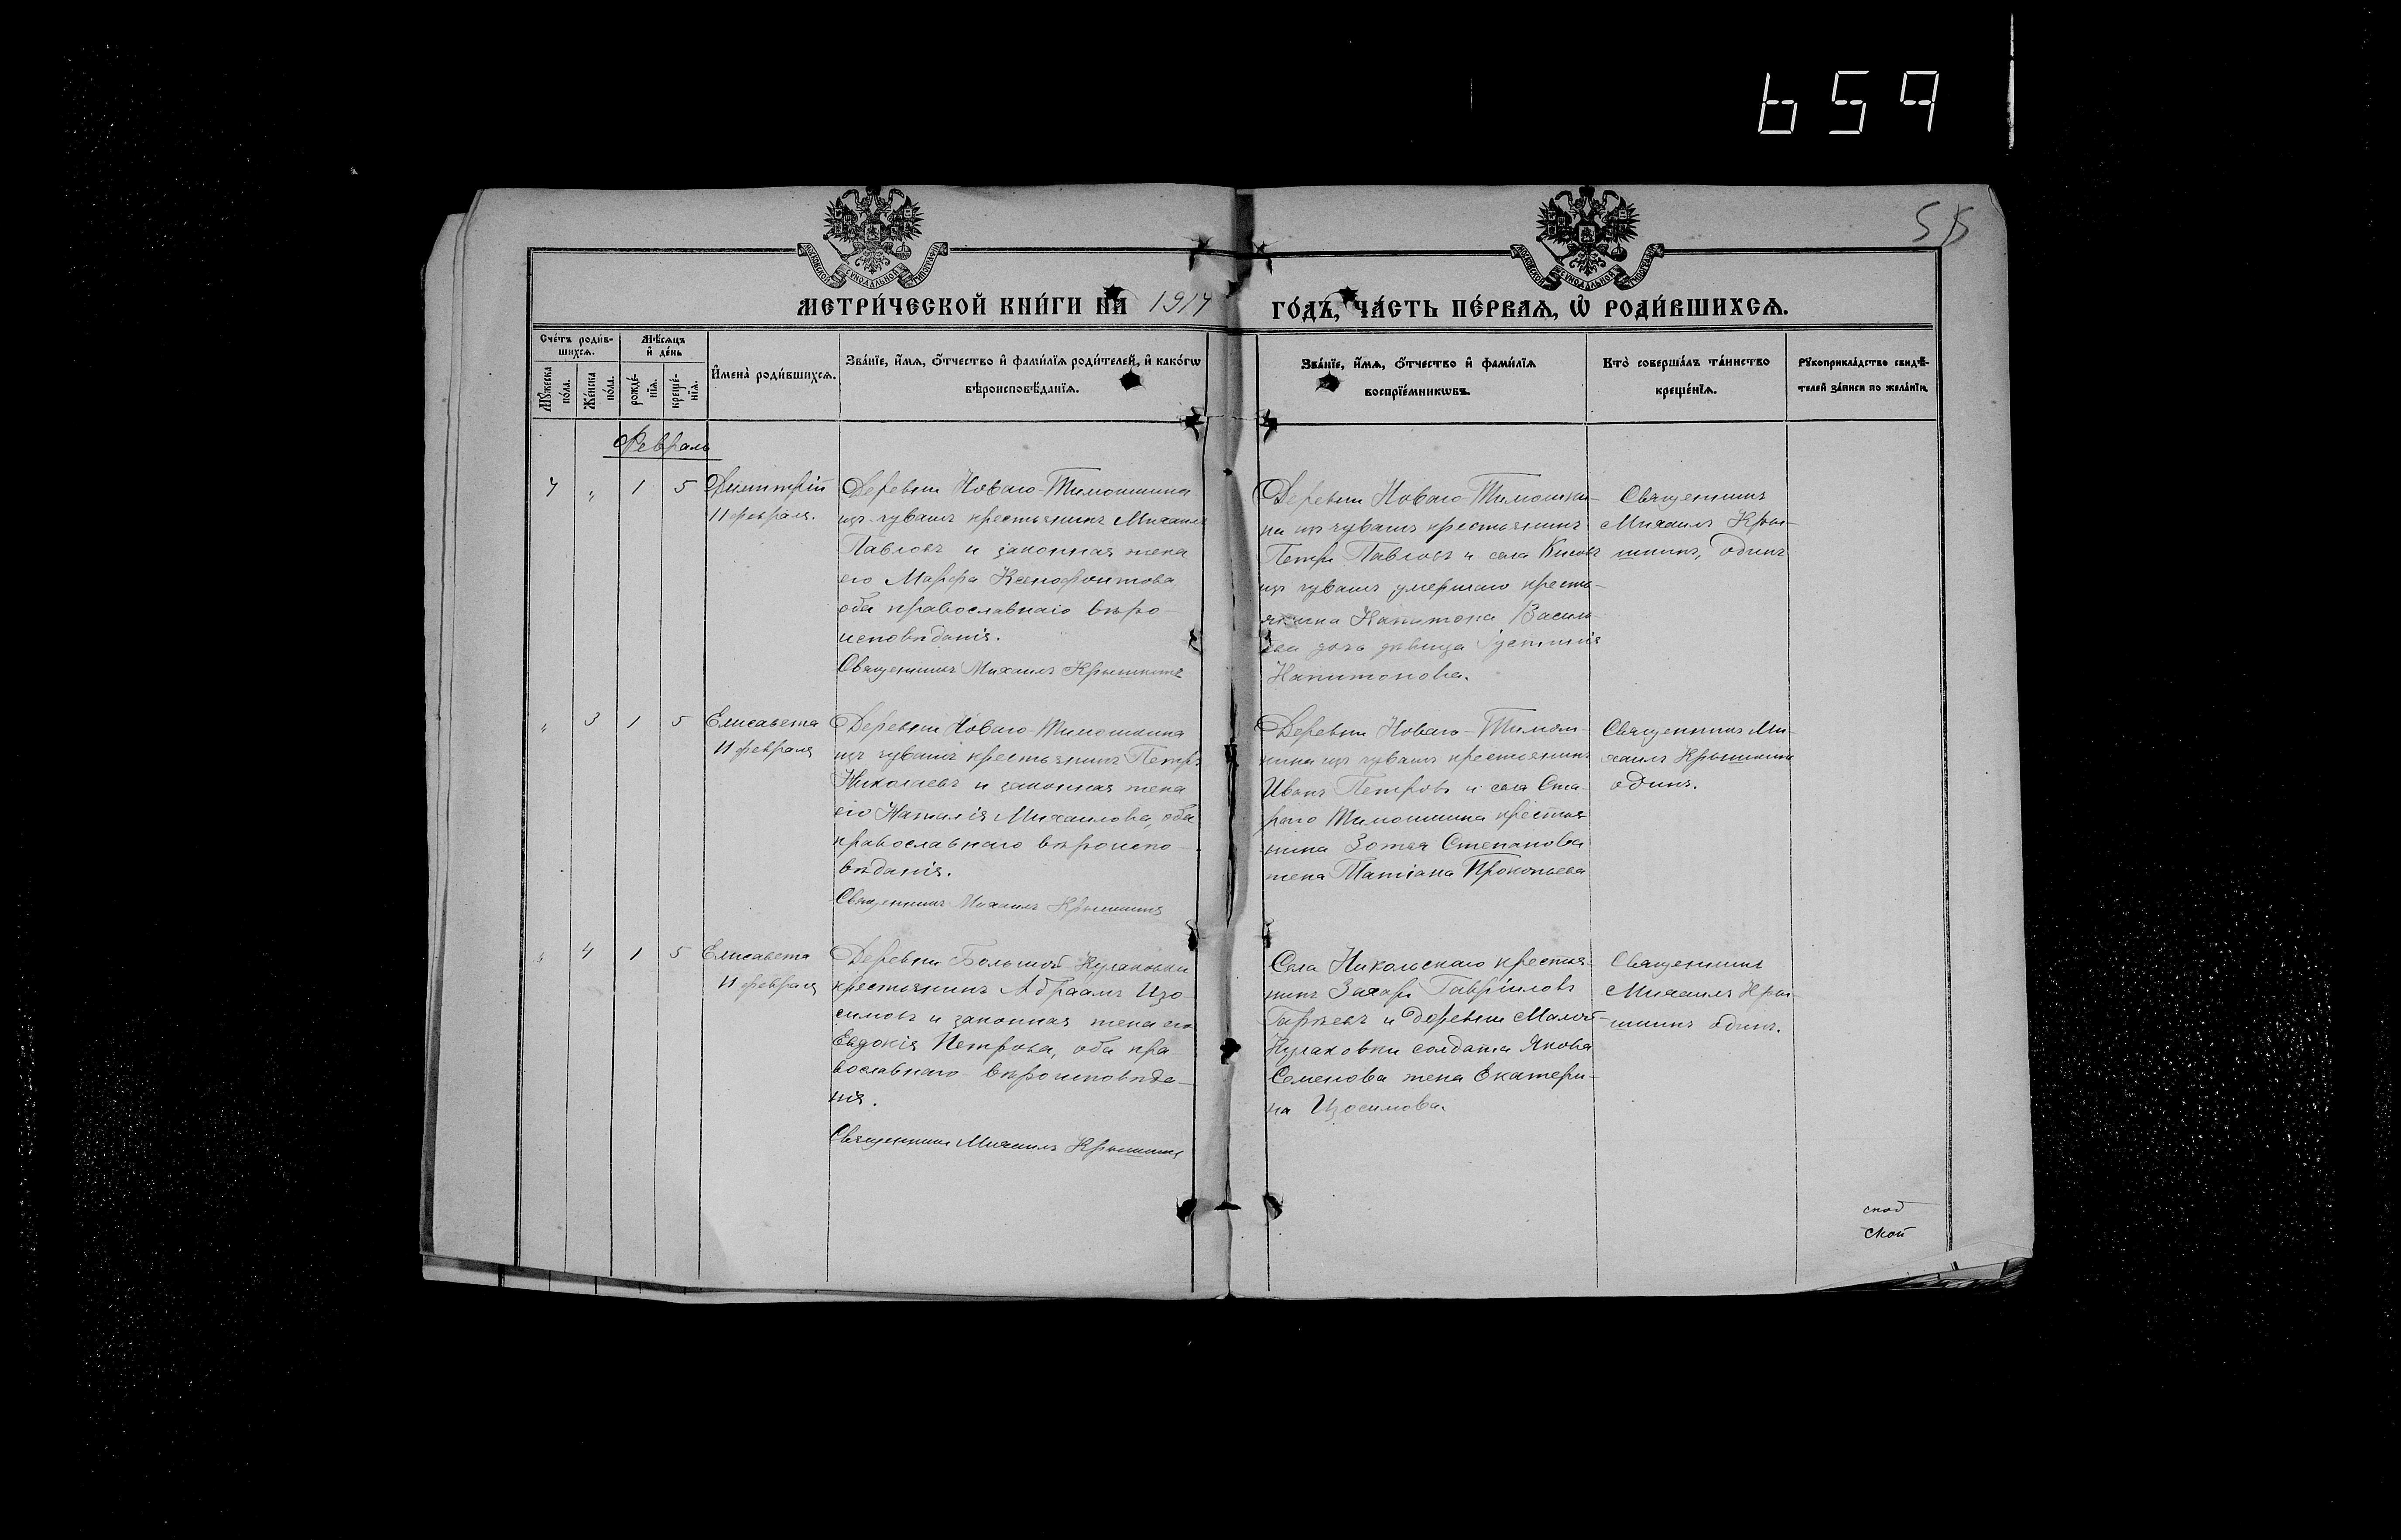 659
55
МОСКОВСКОЙ СУНОДАЛЬНОЙ ТИПОГРАФІИ
МОСКОВСКОЙ СУНОДАЛЬНОЙ ТИПОГРАФІИ
МЕТРИ́ЧЕСКОЙ КНИ́ГИ НА 1917 ГО́ДЪ, ЧА́СТЬ ПЕ́РВАѦ, Ѡ РОДИ́ВШИХСѦ.
Сче́тъ роди́в-
шихсѧ.
Мѣ́сѧцъ
и де́нь
Мꙋ́жеска
по́ла.
Же́нска
по́ла.
рожде́-
нїѧ.
креще́-
нїѧ.
Имена̀ роди́вшихсѧ.
Зва́нїе, и́мѧ, о́тчество и фами́лїѧ роди́телей, и како́гѡ
вѣроисповѣ́данїѧ.
Зва́нїе, и́мѧ, о́тчество и фами́лїѧ
воспрїе́мникѡвъ.
Кто̀ соверша́лъ та́инство
креще́нїѧ.
Рꙋкоприкла́дство свидѣ́-
телей за́писи по жела́нїю.
Февраль
7 " 1 5
Димитрій
11 февраля.
Деревни Новаго-Тимошкина
изъ чувашъ крестьянинъ Михаилъ
Павловъ и законная жена
его Марфа Ксенофонтова,
оба православнаго вѣро-
исповѣданія.
Священникъ Михаилъ Крышкинъ
Деревни Новаго-Тимошки-
на изъ чувашъ крестьянинъ
Петръ Павловъ и села
изъ чувашъ умершаго кресть-
янина Капитона Василь-
ева дочь дѣвица Іустинія
Капитонова.
Священникъ
Михаилъ Кры-
шкинъ, одинъ
" 3 1 5
Елисавета
11 февраля
Деревни Новаго-Тимошкина
изъ чувашъ крестьянинъ Петръ
Николаевъ и законная жена
его Наталія Михаилова, оба
православнаго вѣроиспо-
вѣданія.
Священникъ Михаилъ Крышкинъ
Деревни Новаго-Тимош-
кина изъ чувашъ крестьянинъ
Иванъ Петровъ и села Ста-
раго Тимошкина крестья-
нина Зотея Степанова
жена Татіана Прокопьева
Священникъ Ми-
хаилъ Крышкинъ
одинъ.
" 4 1 5
Елисавета
11 февраля
Деревни Большой-Кулаковки
крестьянинъ Авраамъ Изо-
симовъ и законная жена его
Евдокія Петрова, оба пра-
вославнаго вѣроисповѣда-
нія.
Священникъ Михаилъ Крышкинъ
Села Никольскаго крестья-
нинъ Захаръ Гавріиловъ
и деревни Малой-
Кулаковки солдата Якова
Семенова жена Екатери-
на Изосимова.
Священникъ
Михаилъ Кры-
шкинъ одинъ.
ской